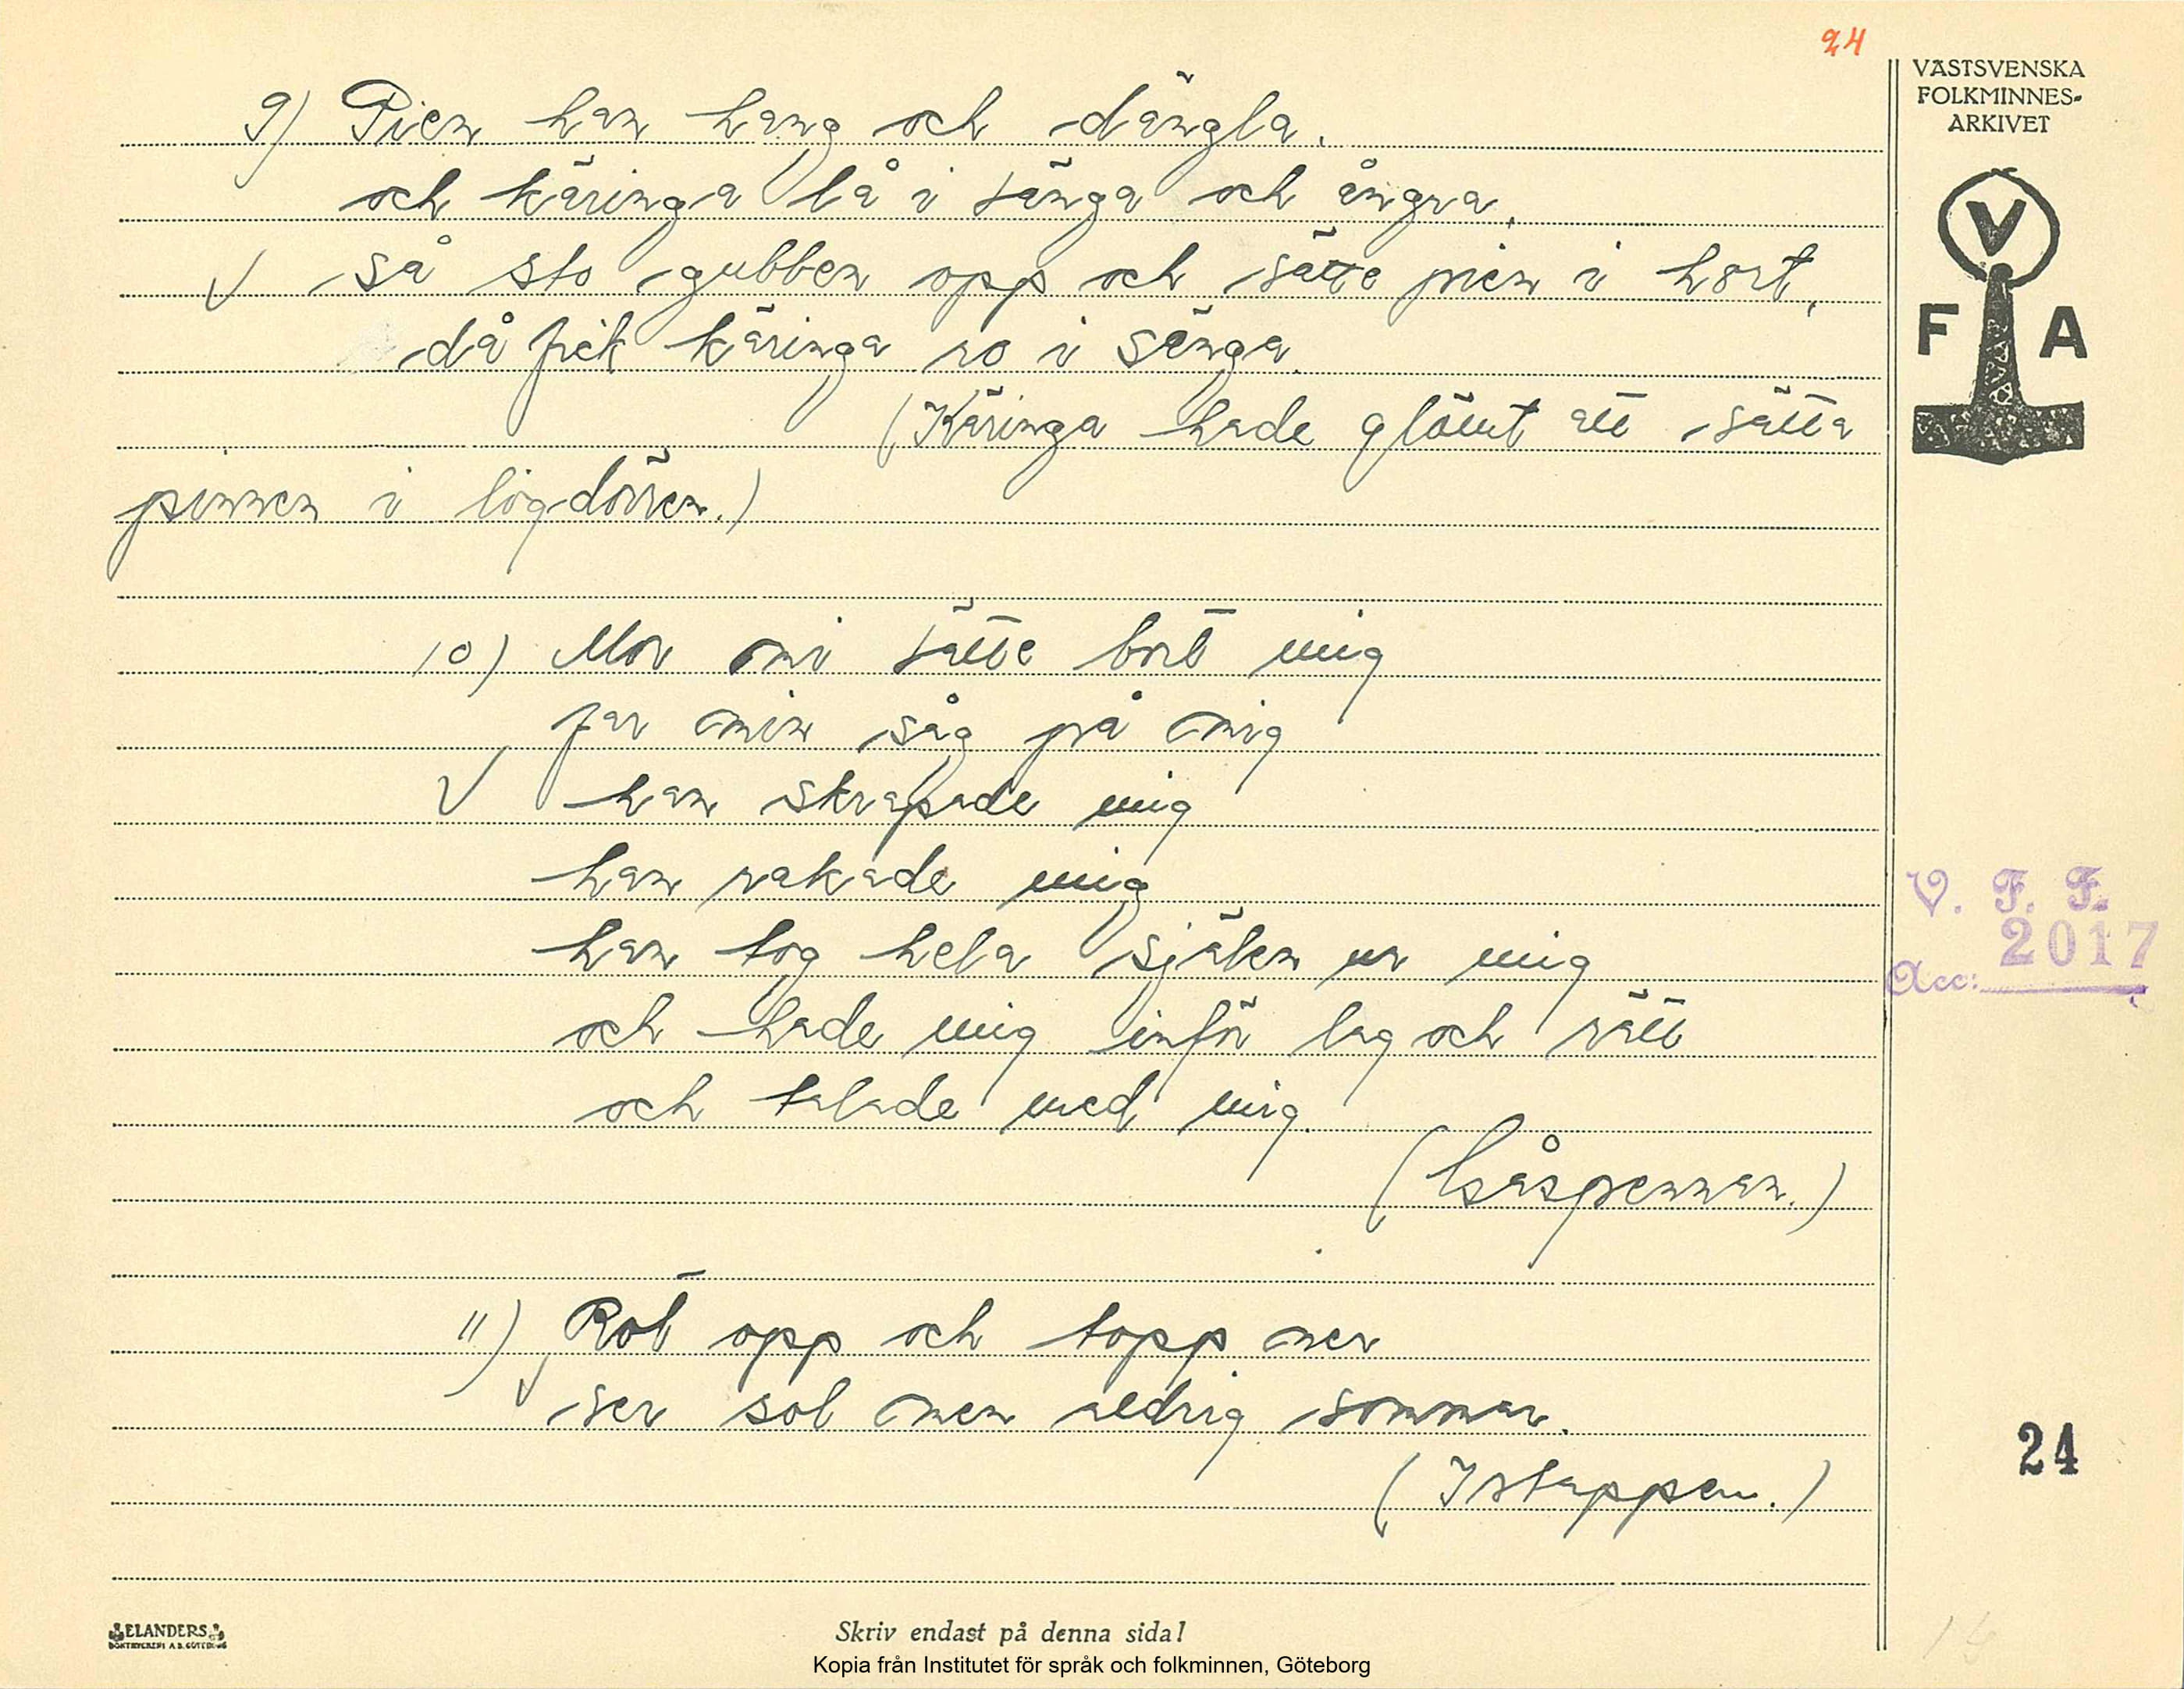 24
VÄSTSVENSKA
FOLKMINNES-
ARKIVET
V
F A
9) Pien han hang och dängla.
och käringa lå i sänga och ångra.
V så sto gubben opp och sätte pien i hort,
då fick käringa ro i sänga.
(Käringa hade glömt att sätta
pinnen i lögdörren.)
10) Mor mi sätte bort mig
far min såg på mig
V han skrapade mig
han rakade mig
han tog hela själen ur mig
och hade mig inför lag och rätt
och talade med mig.
(Gåspennan.)
V. F. F.
2017
Acc:
11) Rot opp och topp ner
V ser sol men aldrig sommar.
(Istappen.)
24
ELANDERS
BOKTRYCKERI A.B. GÖTEBORG
Skriv endast på denna sida!
Kopia från Institutet för språk och folkminnen, Göteborg